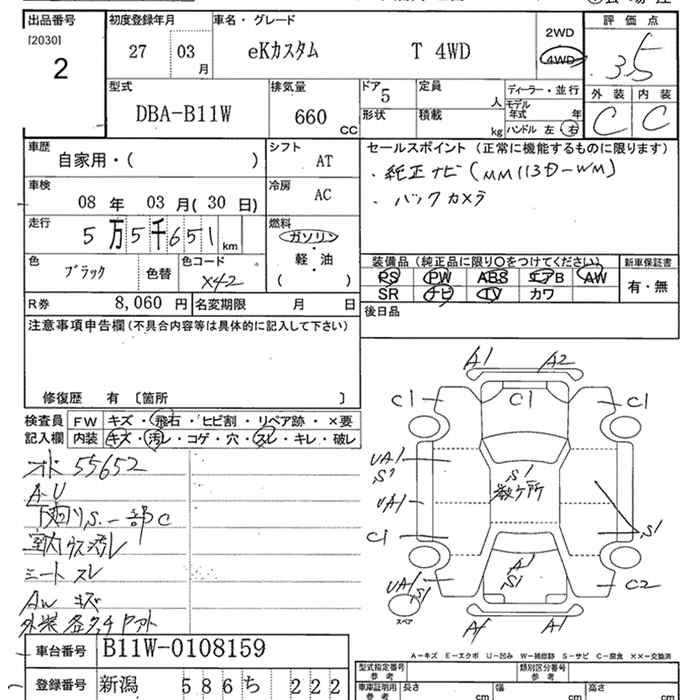 出品番号 初度登録年月 車名・グレード 2WD 評価点
[2030] 27 03 月 eKカスタム T 4WD 4WD 3.5
2
型式 排気量 ドア 定員 人 ディーラー・並行 外装 内装
DBA-B11W 660 CC 5 モデル年式 年 C C
形状 積載 kg ハンドル 左 右
車歴 シフト セールスポイント (正常に機能するものに限ります)
自家用・( ) AT ・純正ナビ(MM113D-WM)
車検 冷房 ・バックカメラ
08 年 03 月(30 日) AC
走行 燃料
5万5千651 km ガソリン
・
軽・油
( )
色 色替 色コード 装備品 (純正品に限り〇をつけてください) 新車保証書
ブラック X42 PS PW ABS エアB AW 有・無
SR ナビ TV カワ
R券 8,060 円 名変期限 月 日 後日品
注意事項申告欄(不具合内容等は具体的に記入して下さい)
修復歴 有 〔箇所 〕
検査員 FW キズ・飛石・ヒビ割・リペア跡・×要
記入欄 内装 キズ・汚レ・コゲ・穴・スレ・キレ・破レ
55652
A・U
下廻りS.一部C
室内ウス汚レ
シート スレ
AW キズ
A1 A2
C1 C1 C1
UA1 S1
S1
数ヶ所
UA1
C1 S1
A1
S1
UA1 S1 C2
スペア
A1 A1
A-キズ E-エクボ U-凹み W-補修跡 S-サビ C-腐食 ××-交換済
車台番号 B11W-0108159 型式指定番号 参考 類別区分番号 参考
登録番号 新潟 586 ち 222 車庫証明用 参考 長さ cm 幅 cm 高さ cm